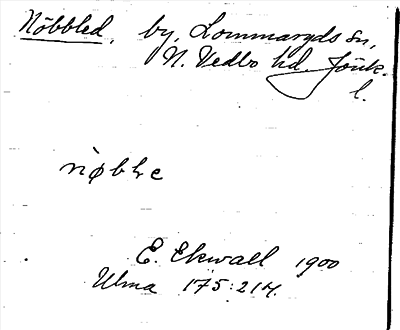 Nöbbled, by, Lommaryds sn,
N. Vedbo hd. Jönk.
l.
nøble
E. Ekwall 1900
Ulma 175:214.